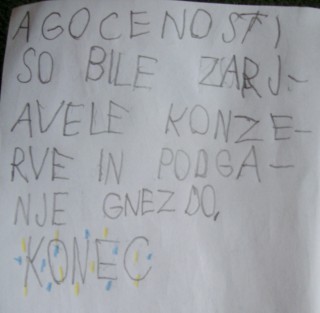 AGOCENOSTI
SO BILE ZARJ-
AVELE KONZE-
RVE IN PODGA-
NJE GNEZDO.
KONEC